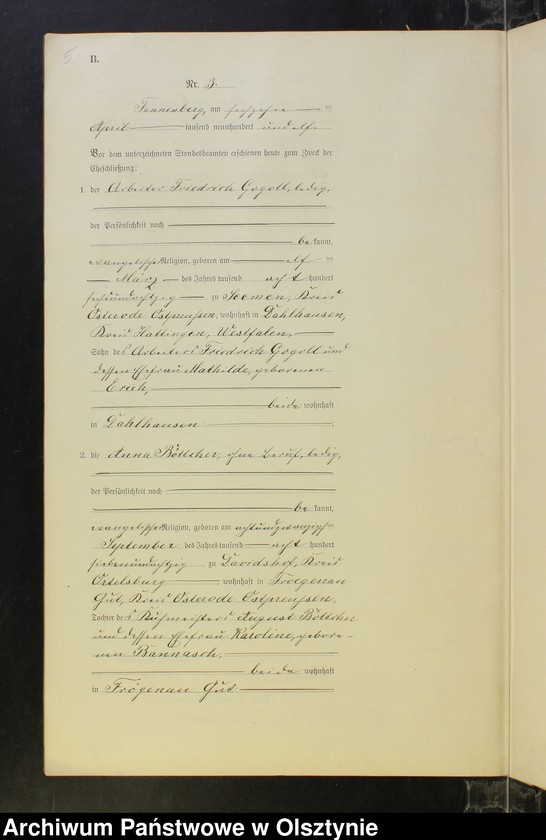 5
B.
Nr. 3.
Tannenberg, am sechzehn ten
April tausend neunhundert und elf.
Vor dem unterzeichneten Standesbeamten erschienen heute zum Zweck der
Eheschließung:
1. der Arbeiter Friedrich Gogoll, ledig,
der Persönlichkeit nach
be kannt,
evangelischer Religion, geboren am elf ten
März des Jahres tausend acht hundert
sechsundachtzig zu Seemen, Kreis
Osterode Ostpreußen, wohnhaft in Dahlhausen,
Kreis Hattingen, Westfalen,
Sohn des Arbeiters Friedrich Gogoll und
dessen Ehefrau Mathilde, geborenen
beide wohnhaft
in Dahlhausen
2. die Anna Böttcher, ohne Beruf, ledig,
der Persönlichkeit nach
be kannt,
evangelischer Religion, geboren am achtundzwanzigsten
September des Jahres tausend acht hundert
siebenundachtzig zu Davidshof, Kreis
Ortelsburg, wohnhaft in Froegenau
Gut, Kreis Osterode Ostpreußen,
Tochter des Kuhmeisters August Böttcher
und dessen Ehefrau Karoline, gebore-
nen Bannasch,
beide wohnhaft
in Frögenau Gut
Archiwum Państwowe w Olsztynie